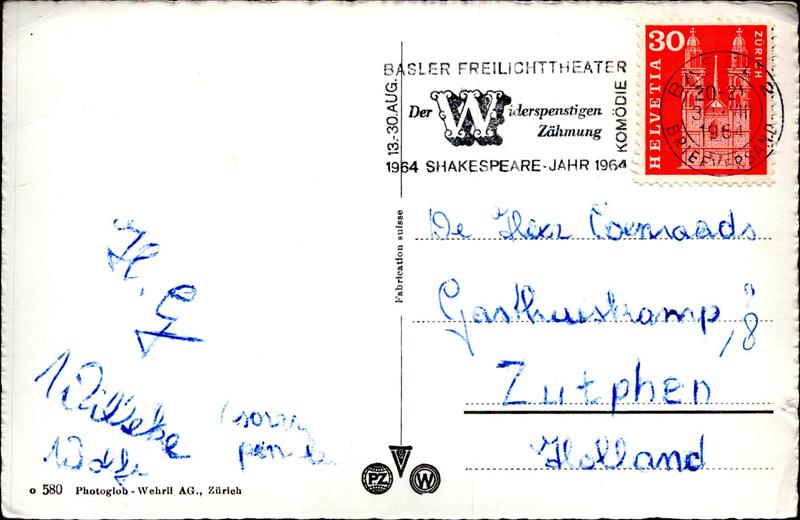 BASLER FREILICHTTHEATER
13.-30. AUG.
Der Widerspenstigen
Zähmung
KOMÖDIE
1964 SHAKESPEARE-JAHR 1964
30
HELVETIA
ZÜRICH
20-21
1964
BRIEFVERSAND
Fabrication suisse
De Heer Coenraads
Gasthuiskamp 8
Zutphen
Holland
H. G
(sorry
pen
PZ
W
o 580 Photoglob-Wehrli AG., Zürich